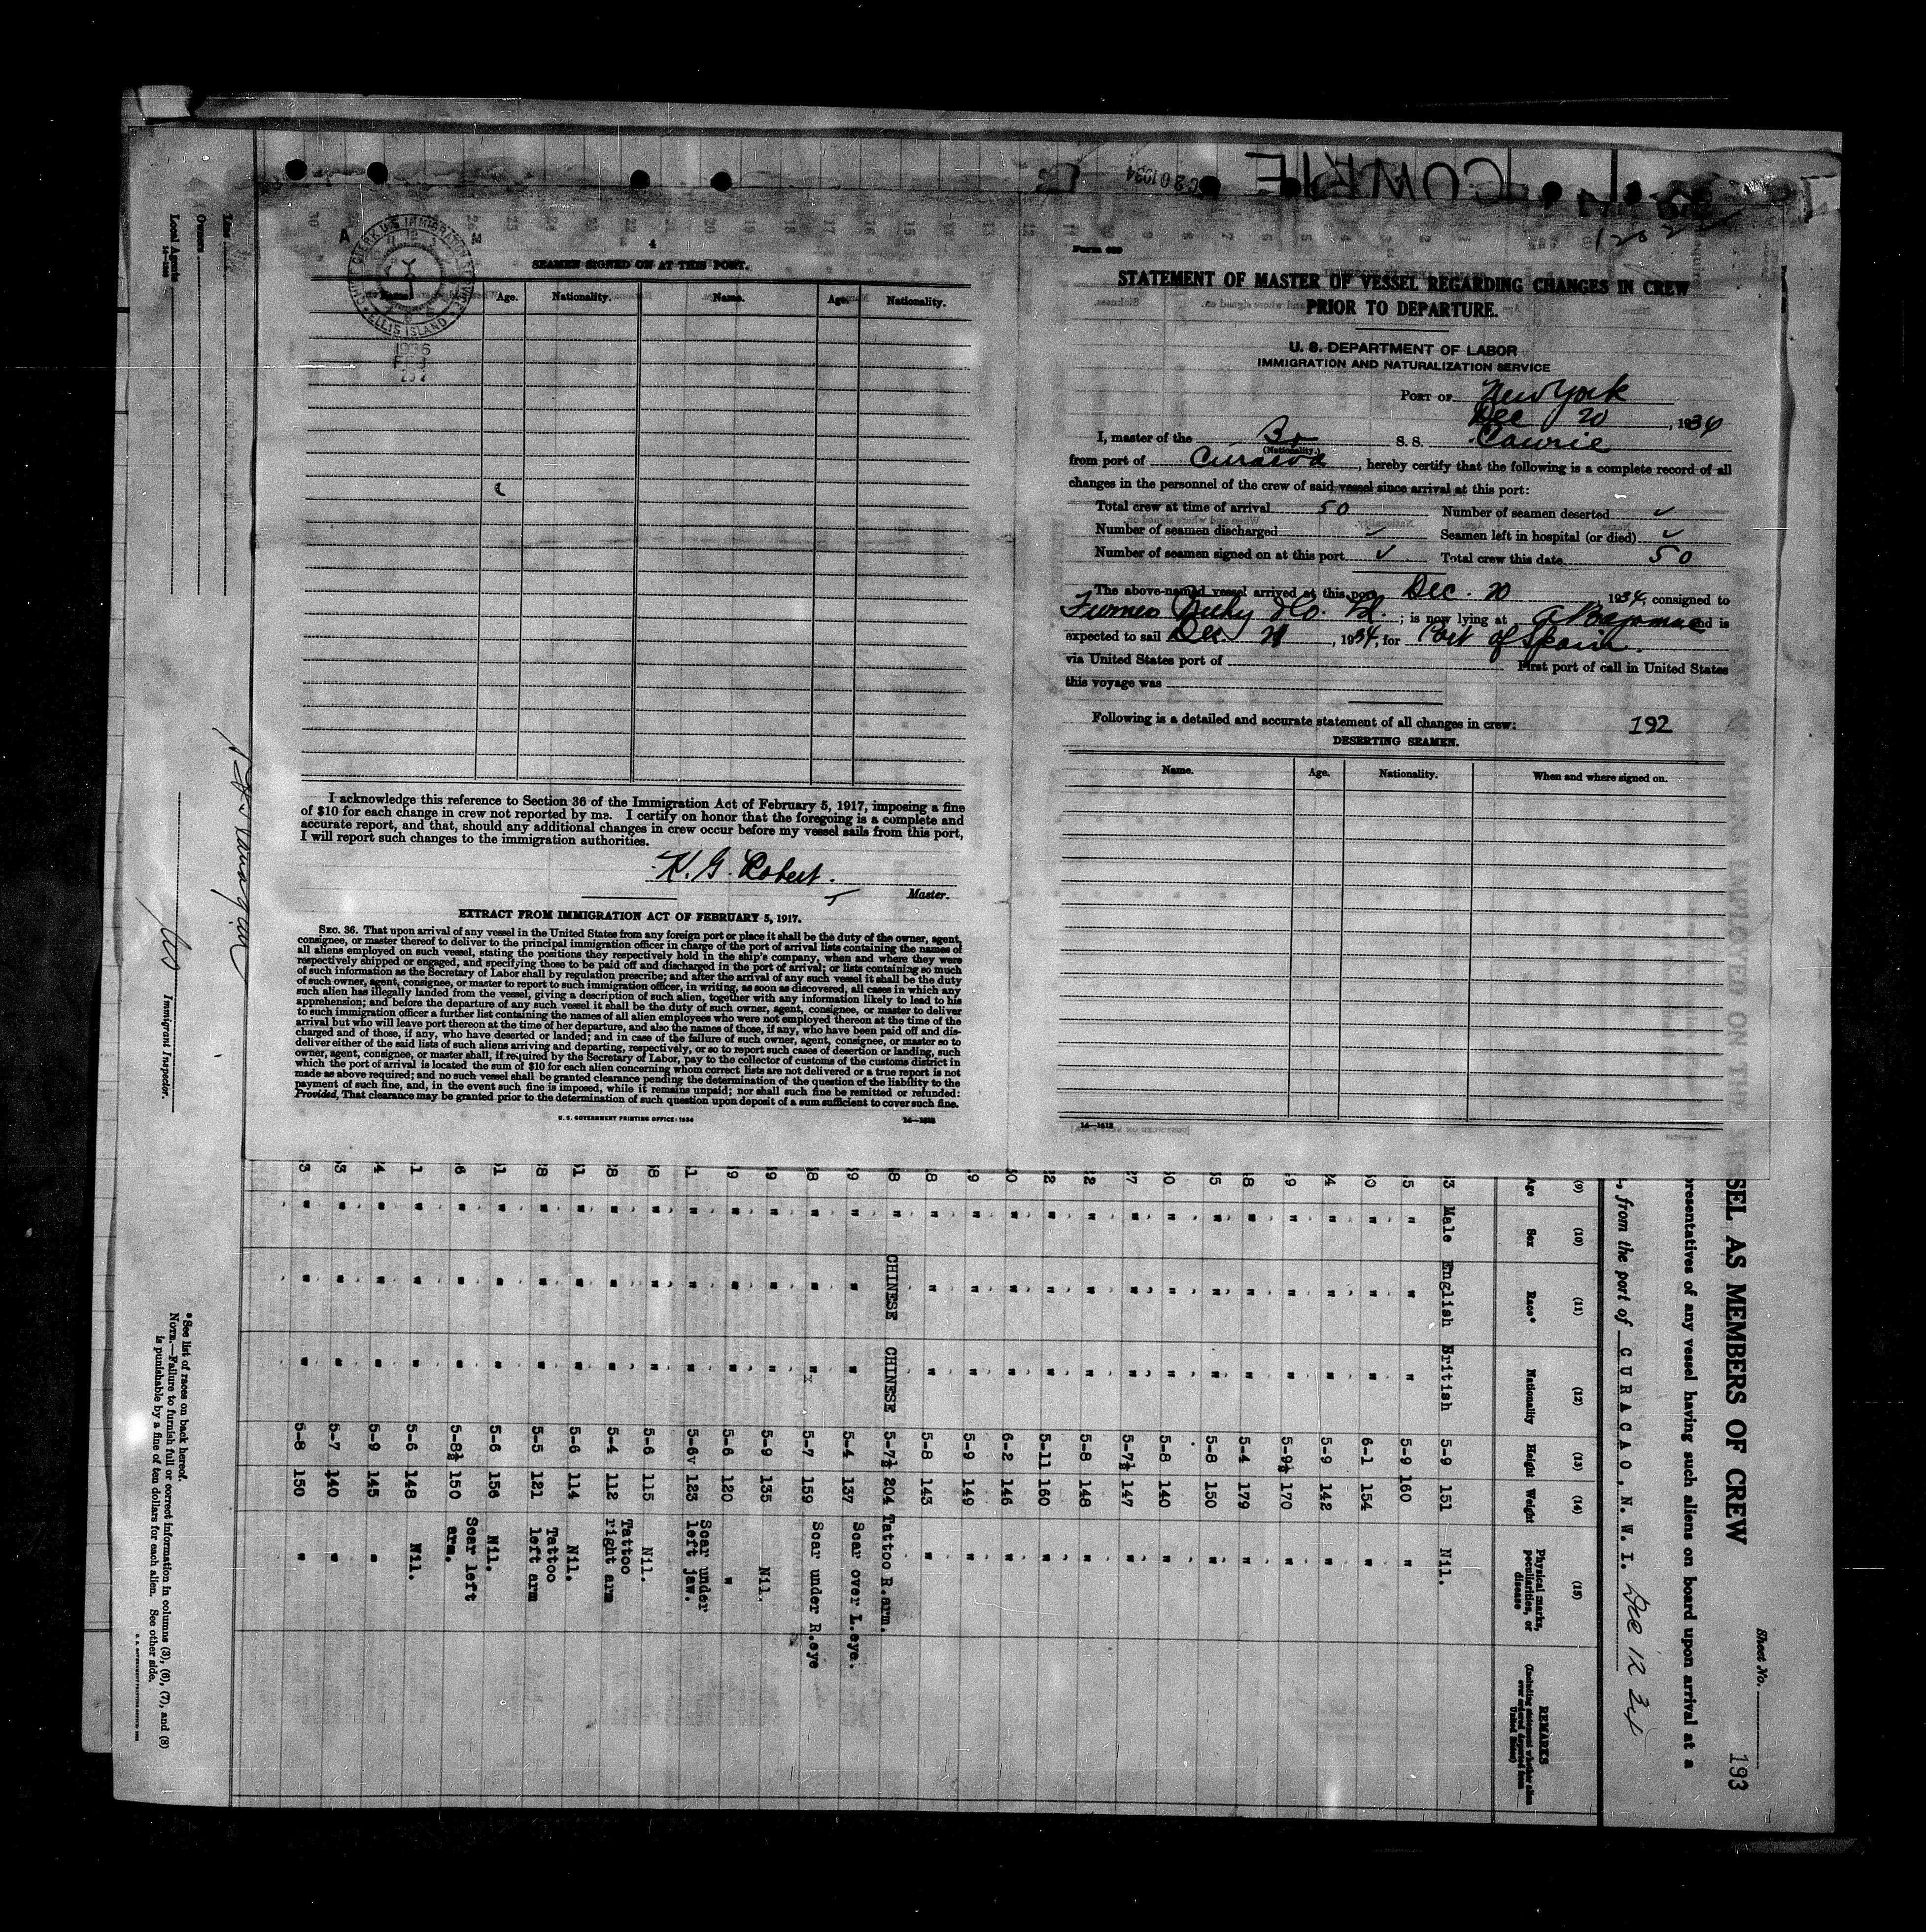 COWRIE
C 20 1934
4
SEAMEN SIGNED ON AT THIS PORT.
Name. Age. Nationality. Name. Age. Nationality.
CHIEF CLERK U.S. IMMIGRATION SERVICE
ELLIS ISLAND
1936
I acknowledge this reference to Section 36 of the Immigration Act of February 5, 1917, imposing a fine
of $10 for each change in crew not reported by me. I certify on honor that the foregoing is a complete and
accurate report, and that, should any additional changes in crew occur before my vessel sails from this port,
I will report such changes to the immigration authorities.
H. G. Robert.
Master.
EXTRACT FROM IMMIGRATION ACT OF FEBRUARY 5, 1917.
SEC. 36. That upon arrival of any vessel in the United States from any foreign port or place it shall be the duty of the owner, agent,
consignee, or master thereof to deliver to the principal immigration officer in charge of the port of arrival lists containing the names of
all aliens employed on such vessel, stating the positions they respectively hold in the ship's company, when and where they were
respectively shipped or engaged, and specifying those to be paid off and discharged in the port of arrival; or lists containing so much
of such information as the Secretary of Labor shall by regulation prescribe; and after the arrival of any such vessel it shall be the duty
of such owner, agent, consignee, or master to report to such immigration officer, in writing, as soon as discovered, all cases in which any
such alien has illegally landed from the vessel, giving a description of such alien, together with any information likely to lead to his
apprehension; and before the departure of any such vessel it shall be the duty of such owner, agent, consignee, or master to deliver
to such immigration officer a further list containing the names of all alien employees who were not employed thereon at the time of the
arrival but who will leave port thereon at the time of her departure, and also the names of those, if any, who have been paid off and dis-
charged and of those, if any, who have deserted or landed; and in case of the failure of such owner, agent, consignee, or master so to
deliver either of the said lists of such aliens arriving and departing, respectively, or so to report such cases of desertion or landing, such
owner, agent, consignee, or master shall, if required by the Secretary of Labor, pay to the collector of customs of the customs district in
which the port of arrival is located the sum of $10 for each alien concerning whom correct lists are not delivered or a true report is not
made as above required; and no such vessel shall be granted clearance pending the determination of the question of the liability to the
payment of such fine, and, in the event such fine is imposed, while it remains unpaid; nor shall such fine be remitted or refunded:
Provided, That clearance may be granted prior to the determination of such question upon deposit of a sum sufficient to cover such fine.
U. S. GOVERNMENT PRINTING OFFICE: 1934
Form 689
STATEMENT OF MASTER OF VESSEL REGARDING CHANGES IN CREW
PRIOR TO DEPARTURE.
U. S. DEPARTMENT OF LABOR
IMMIGRATION AND NATURALIZATION SERVICE
PORT OF New York
Dec 20, 1934
I, master of the Br S. S. Cowrie
(Nationality.)
from port of Curacoa, hereby certify that the following is a complete record of all
changes in the personnel of the crew of said vessel since arrival at this port:
Total crew at time of arrival 50 Number of seamen deserted ✓
Number of seamen discharged ✓ Seamen left in hospital (or died) ✓
Number of seamen signed on at this port ✓ Total crew this date 50
The above-named vessel arrived at this port Dec. 20 1934, consigned to
Furness Withy & Co. Ld.; is now lying at and is
expected to sail Dec. 21, 1934, for Port of Spain.
via United States port of First port of call in United States
this voyage was
Following is a detailed and accurate statement of all changes in crew: 192
DESERTING SEAMEN.
Name. Age. Nationality. When and where signed on.
14—1612
Line
Owners
Local Agents
Immigrant Inspector.
193
Sheet No.
SEL AS MEMBERS OF CREW
presentatives of any vessel having such aliens on board upon arrival at a
, from the port of CURACAO, N. W. I. Dec 12 34
(9) (10) (11) (12) (13) (14) (15)
Age Sex Race* Nationality Height Weight Physical marks, peculiarities, or disease REMARKS (Including statement whether alien ever ordered deported from United States)
3 Male English British 5-9 151 Nil.
5 " " " 5-9 160 "
0 " " " 6-1 154 "
4 " " " 5-9 142 "
9 " " " 5-9½ 170 "
8 " " " 5-4 179 "
5 " " " 5-8 150 "
0 " " " 5-8 140 "
7 " " " 5-7½ 147 "
2 " " " 5-8 148 "
2 " " " 5-11 160 "
0 " " " 6-2 146 "
9 " " " 5-9 149 "
8 " " " 5-8 143 "
8 " CHINESE CHINESE 5-7½ 204 Tattoo R.arm.
9 " " " 5-4 137 Scar over L.eye.
8 " " " 5-7 159 Scar under R.eye
9 " " " 5-9 135 Nil.
9 " " " 5-6 120 "
1 " " " 5-6 123 Scar under left jaw.
8 " " " 5-6 115 Nil.
8 " " " 5-4 112 Tattoo right arm
1 " " " 5-6 114 Nil.
8 " " " 5-5 121 Tattoo left arm
1 " " " 5-6 156 Nil.
6 " " " 5-8½ 150 Scar left arm.
1 " " " 5-6 148 Nil.
4 " " " 5-9 145 "
3 " " " 5-7 140 "
3 " " " 5-8 150 "
* See list of races on back hereof.
NOTE.—Failure to furnish full or correct information in columns (3), (6), (7), and (8)
is punishable by a fine of ten dollars for each alien. See other side.